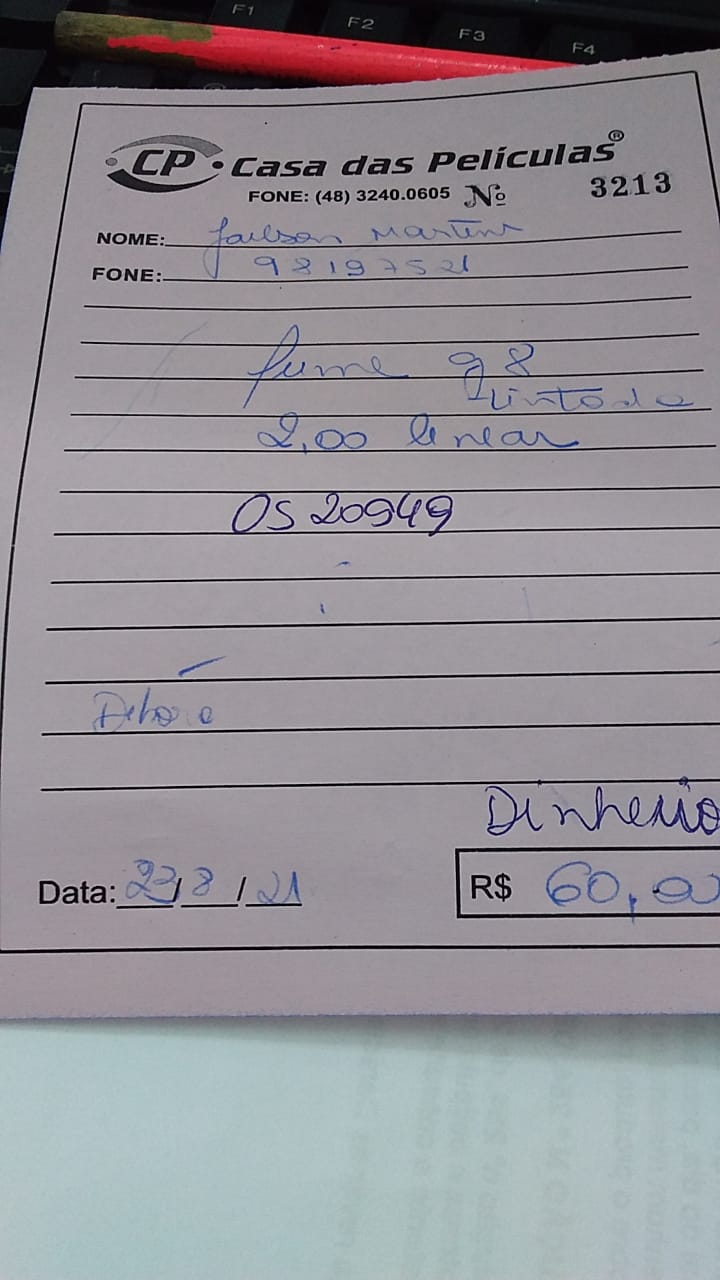 F1 F2 F3 F4
CP Casa das Películas®
FONE: (48) 3240.0605 Nº 3213
NOME: Jailson Martins
FONE: 98197521
fume g8
tintado
2,00 linear
OS 20949
Débora
Dinheiro
Data: 23/8/21 R$ 60,00